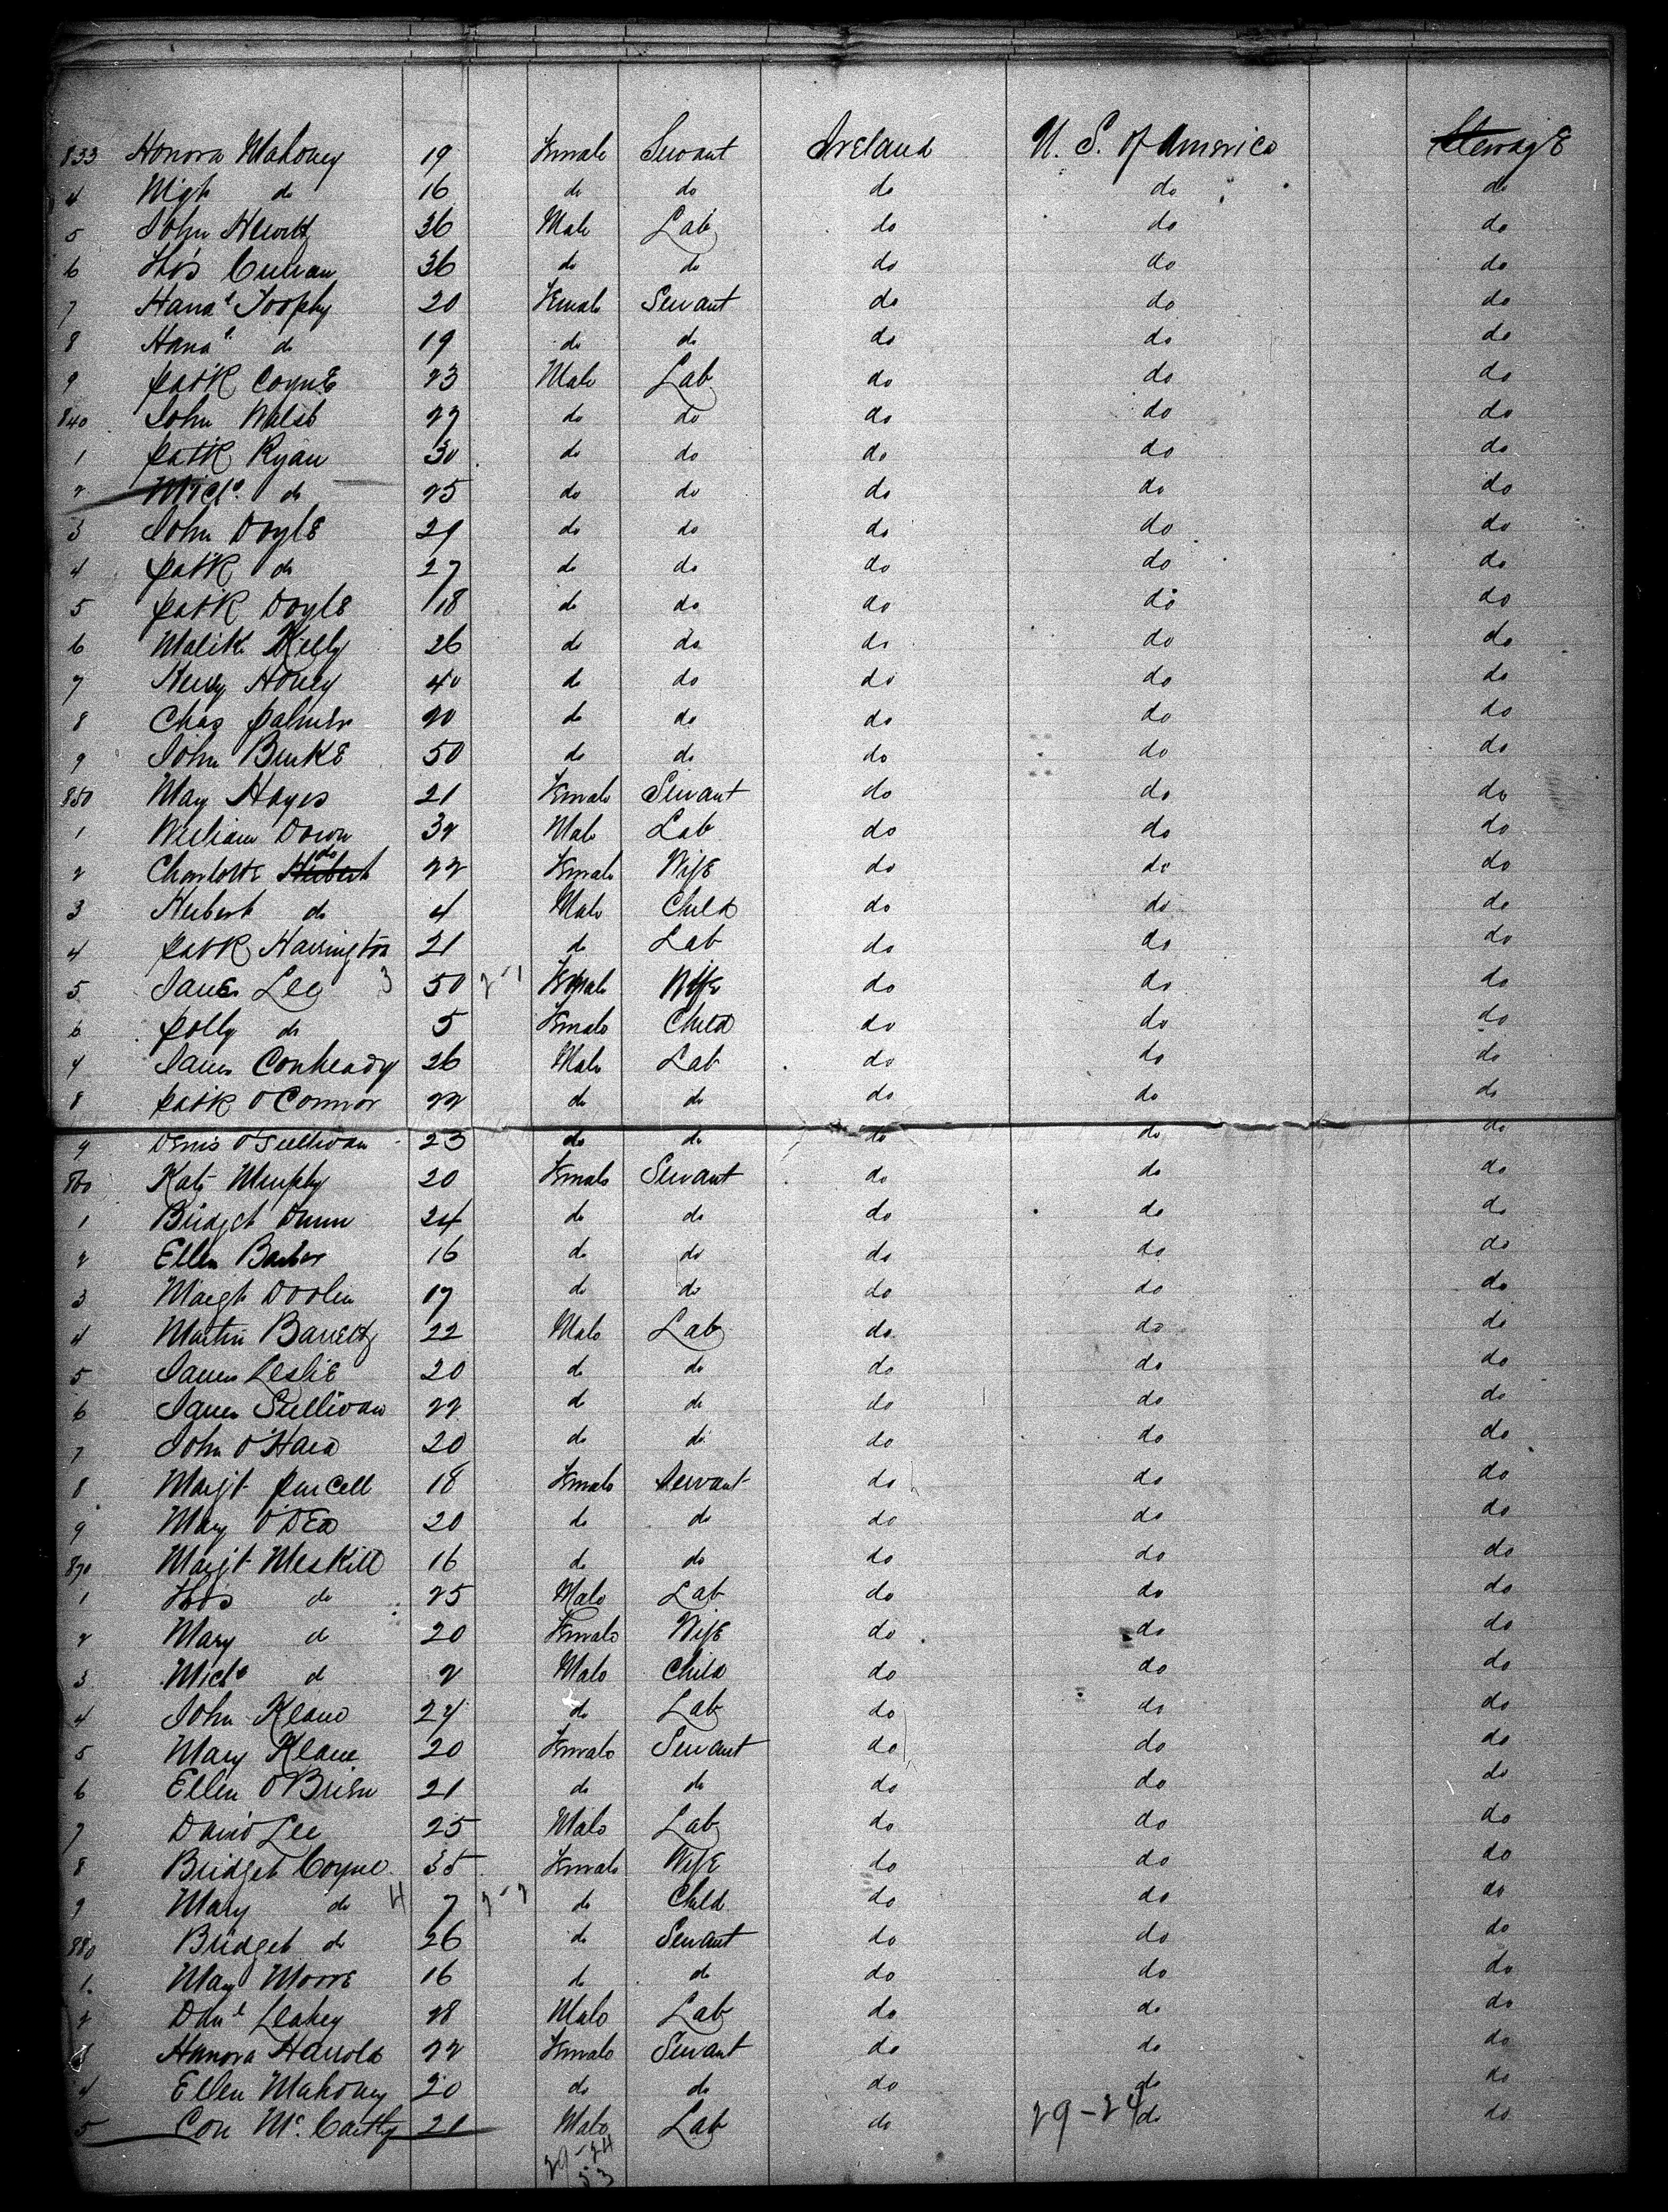 833 Honora Mahoney 19 Female Servant Ireland U. S. of America Steerage
4 do 16 do do do do do
5 John Hewitt 26 Male Lab do do do
6 Thos 36 do do do do do
7 Hana 20 Female Servant do do do
8 Hana do 19 do do do do do
9 Patk Coyne 23 Male Lab do do do
840 John Walsh 27 do do do do do
1 Patk Ryan 30 do do do do do
2 Michl do 25 do do do do do
3 John Doyle 21 do do do do do
4 Patk do 27 do do do do do
5 Patk Doyle 18 do do do do do
6 Kelly 26 do do do do do
7 40 do do do do do
8 Chas Palmer 20 do do do do do
9 John Burke 50 do do do do do
850 May Hayes 21 Female Servant do do do
1 William Down 32 Male Lab do do do
2 Charlotte Hubert do 22 Female Wife do do do
3 Hubert do 4 Male Child do do do
4 Patk Harrington 21 do Lab do do do
5 Lee 3 50 2-1 Female Wife do do do
6 Polly do 5 Female Child do do do
7 James Conheady 26 Male Lab do do do
8 Patk O'Connor 22 do do do do do
9 Denis O'Sullivan 23 do do do do do
860 Kate Murphy 20 Female Servant do do do
1 Bridget Dunn 24 do do do do do
2 Ellen 16 do do do do do
3 Margt Doolin 17 do do do do do
4 Martin Barrett 22 Male Lab do do do
5 James Leslie 20 do do do do do
6 James Sullivan 22 do do do do do
7 John O'Hara 20 do do do do do
8 Margt Purcell 18 Female Servant do do do
9 Mary O'Dea 20 do do do do do
870 Margt Meskill 16 do do do do do
1 Thos do 25 Male Lab do do do
2 Mary do 20 Female Wife do do do
3 Michl do 2 Male Child do do do
4 John Keane do Lab do do do
5 Mary Keane 20 Female Servant do do do
6 Ellen O'Brien 21 do do do do do
7 David Lee 25 Male Lab do do do
8 Bridget Coyne 35 Female Wife do do do
9 Mary do 4 7 2-2 do Child do do do
880 Bridget do 26 do Servant do do do
1 May Moore 16 do do do do do
2 Danl Leahey 28 Male Lab do do do
3 Hanora Harrold 22 Female Servant do do do
4 Ellen Mahoney 20 do do do do do
5 Con McCarthy 21 Male Lab do 29-24 do do
29-24
53